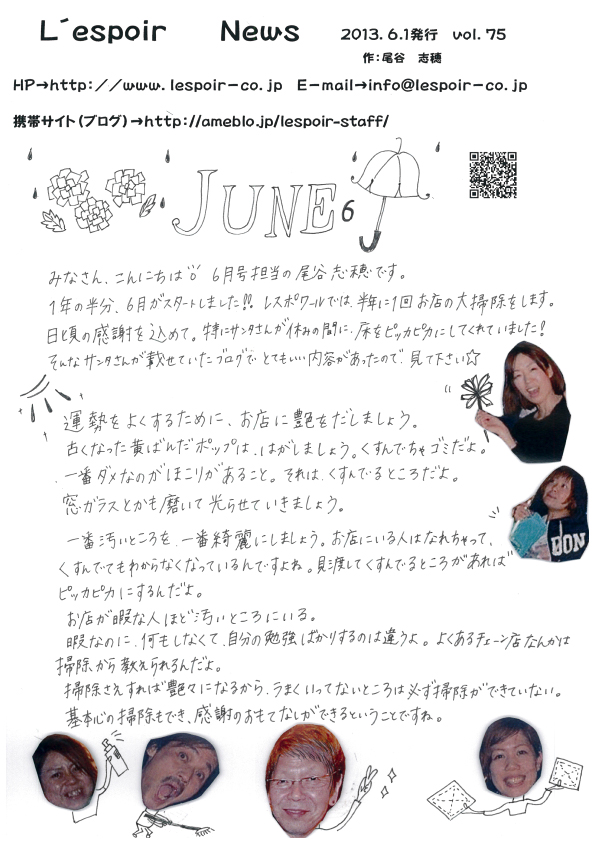 L´espoir News 2013.6.1発行 vol.75
作:尾谷 志穂
HP→http://www.lespoir-co.jp E-mail→info@lespoir-co.jp
携帯サイト(ブログ)→http://ameblo.jp/lespoir-staff/
JUNE 6
みなさん、こんにちは 6月号担当の尾谷志穂です。
1年の半分、6月がスタートしました!! レスポワールでは、半年に1回お店の大掃除をします。
日頃の感謝を込めて。特にサンタさんが休みの間に、床をピッカピカにしてくれていました!
そんなサンタさんが載せていたブログで、とてもいい内容があったので、見て下さい☆
運勢をよくするために、お店に艶をだしましょう。
古くなった黄ばんだポップは、はがしましょう。くすんでちゃゴミだよ。
一番ダメなのがほこりがあること。それは、くすんでるところだよ。
窓ガラスとかも磨いて光らせていきましょう。
一番汚いところを、一番綺麗にしましょう。お店にいる人はなれちゃって、
くすんでてもわからなくなっているんですよね。見渡してくすんでるところがあれば
ピッカピカにするんだよ。
お店が暇な人ほど汚いところにいる。
暇なのに、何もしなくて、自分の勉強ばかりするのは違うよ。よくあるチェーン店なんかは
掃除から教えられるんだよ。
掃除さえすれば艶々になるから、うまくいってないところは必ず掃除ができていない。
基本心の掃除もでき、感謝のおもてなしができるということですね。
DON